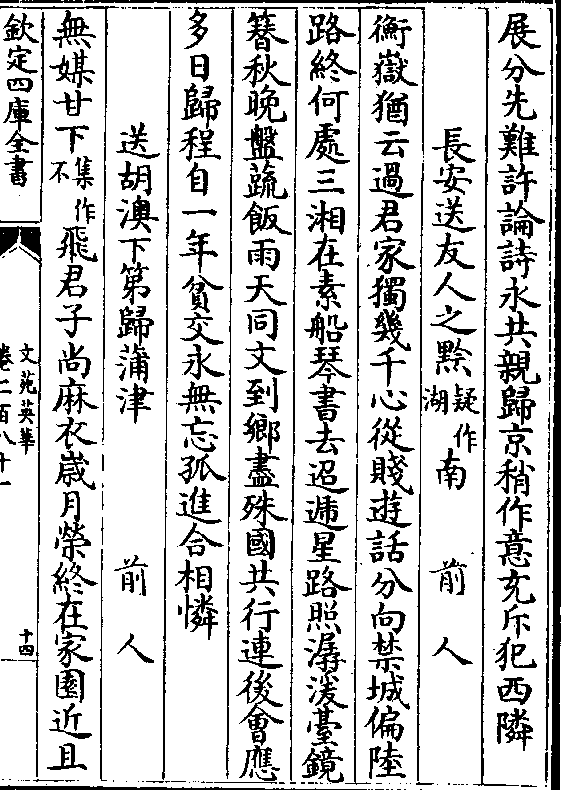 展分先難許論詩永共親歸京稍作意充斥犯西隣
長安送友人之黔疑作湖南 前人
衡嶽猶云過君家獨幾千心從賤遊話分向禁城偏陸
路終何處三湘在素船琴書去迢遞星路照潺湲臺鏡
簪秋晚盤蔬飯雨天同文到鄉盡殊國共行連後會應
多日歸程自一年貧交永無忘孤進合相憐
送胡澳下第歸蒲津 前人
無媒甘下集作不飛君子尚麻衣歲月榮終在家園近且
欽定四庫全書
文苑英華
卷二百八十一
十四